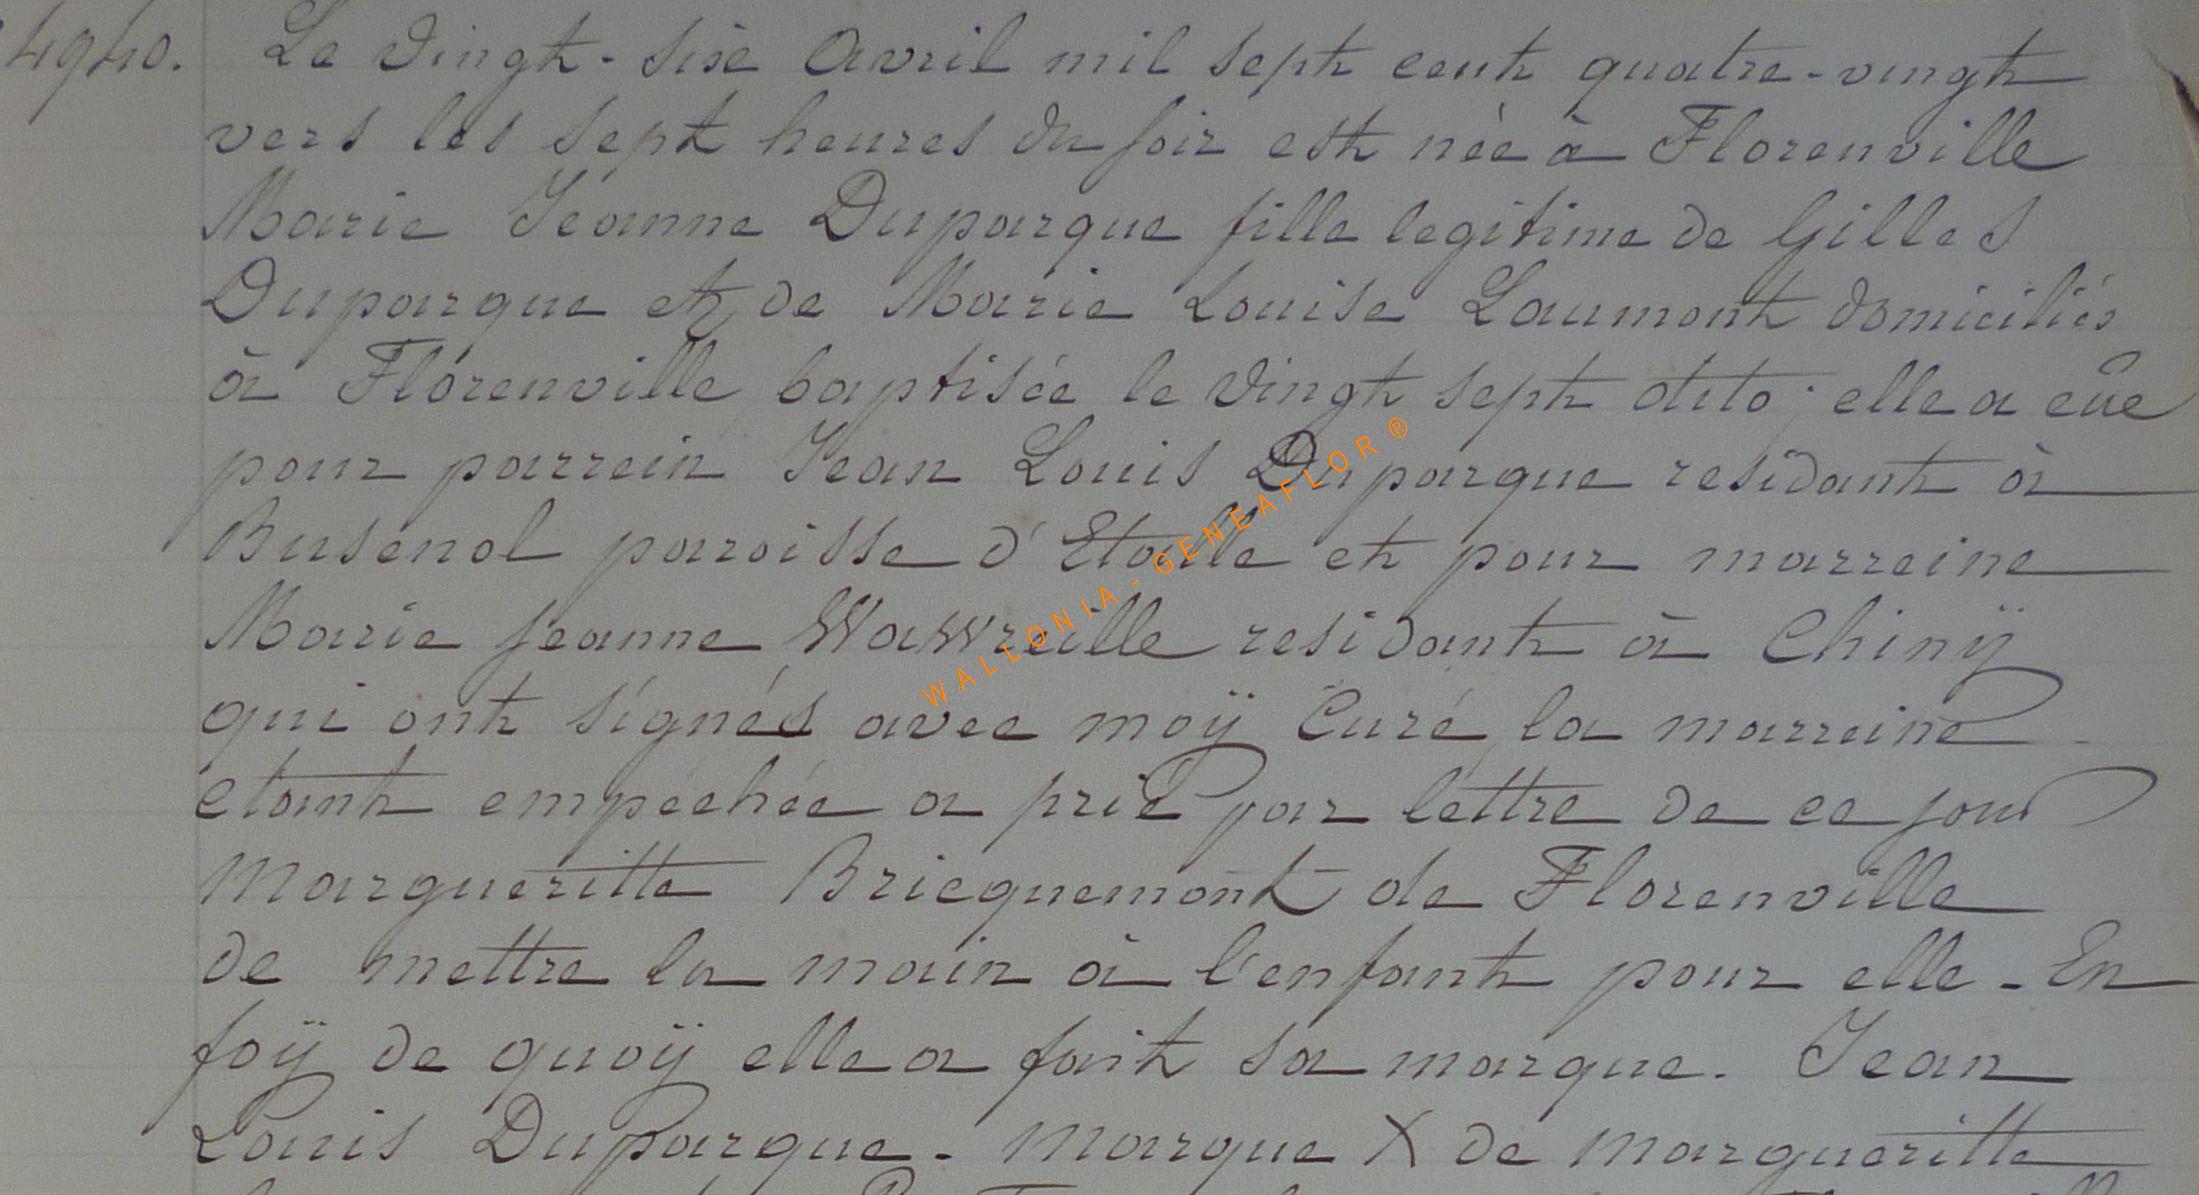 4940. Le vingt-sixe Avril mil sept cent quatre-vingt
vers les sept heures du soir est née à Florenville
Marie Jeanne Duparque fille legitime de Gilles
Duparque et de Marie Louise Laumont domiciliés
à Florenville baptisée le vingt sept dito elle a eûe
pour parrein Jean Louis Duparque residant à
Busenol paroisse d'Etalle et pour marreine
Marie Jeanne Wawreille residant à Chinÿ
qui ont signés avec moÿ Curé la marreine
etant empéchée a prié par lettre de ce jour
Margueritte Bricquemont de Florenville
de mettre la main à l'enfant pour elle - En
foÿ de quoÿ elle a fait sa marque. Jean
Louis Duparque - Marque X de Margueritte
WALLONIA-GENEAFLOR ®